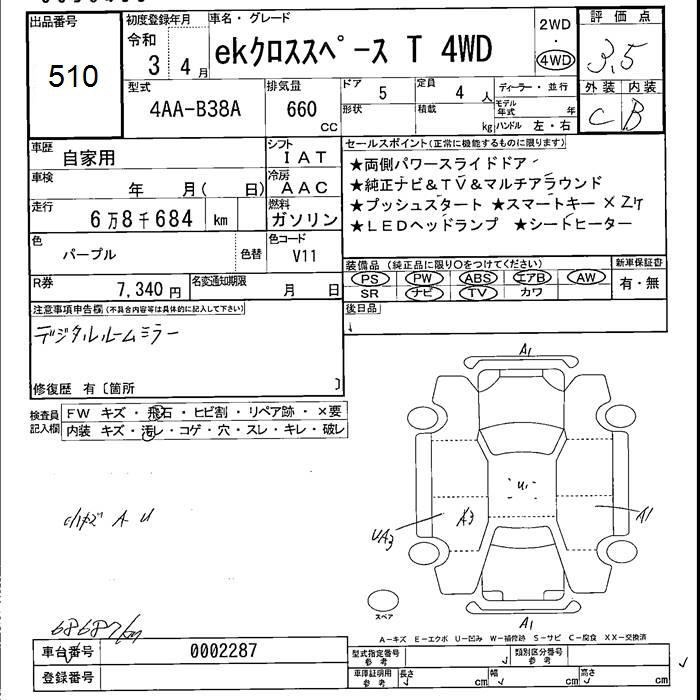 出品番号
510
初度登録年月
令和
3 4 月
車名・グレード
ekクロススペース T 4WD
2WD
・
4WD
評価点
3.5
外装 内装
C B
型式
4AA-B38A
排気量
660 CC
ドア
5
形状
定員
4 人
積載
kg
ディーラー・並行
モデル年式 年
ハンドル 左・右
車歴
自家用
シフト
IAT
車検
年 月( 日)
冷房
AAC
走行
6万8千684 km
燃料
ガソリン
色
パープル
色替
色コード
V11
R券
7,340 円
名変通知期限
月 日
セールスポイント(正常に機能するものに限ります)
★両側パワースライドドア
★純正ナビ&TV&マルチアラウンド
★プッシュスタート ★スマートキー×2ケ
★LEDヘッドランプ ★シートヒーター
装備品 (純正品に限り○をつけてください)
PS PW ABS エアB AW
SR ナビ TV カワ
新車保証書
有・無
後日品
注意事項申告欄(不具合内容等は具体的に記入して下さい)
デジタルルームミラー
修復歴 有〔箇所 〕
検査員記入欄
FW キズ・飛石・ヒビ割・リペア跡・×要
内装 キズ・汚レ・コゲ・穴・スレ・キレ・破レ
小キズ A U
A1
U1
UA3
A3
A1
A1
スペア
A-キズ E-エクボ U-凹み W-補修跡 S-サビ C-腐食 XX-交換済
68687km
車台番号
0002287
登録番号
型式指定番号
参考
類別区分番号
参考
車庫証明用
参考
長さ cm
幅 cm
高さ cm